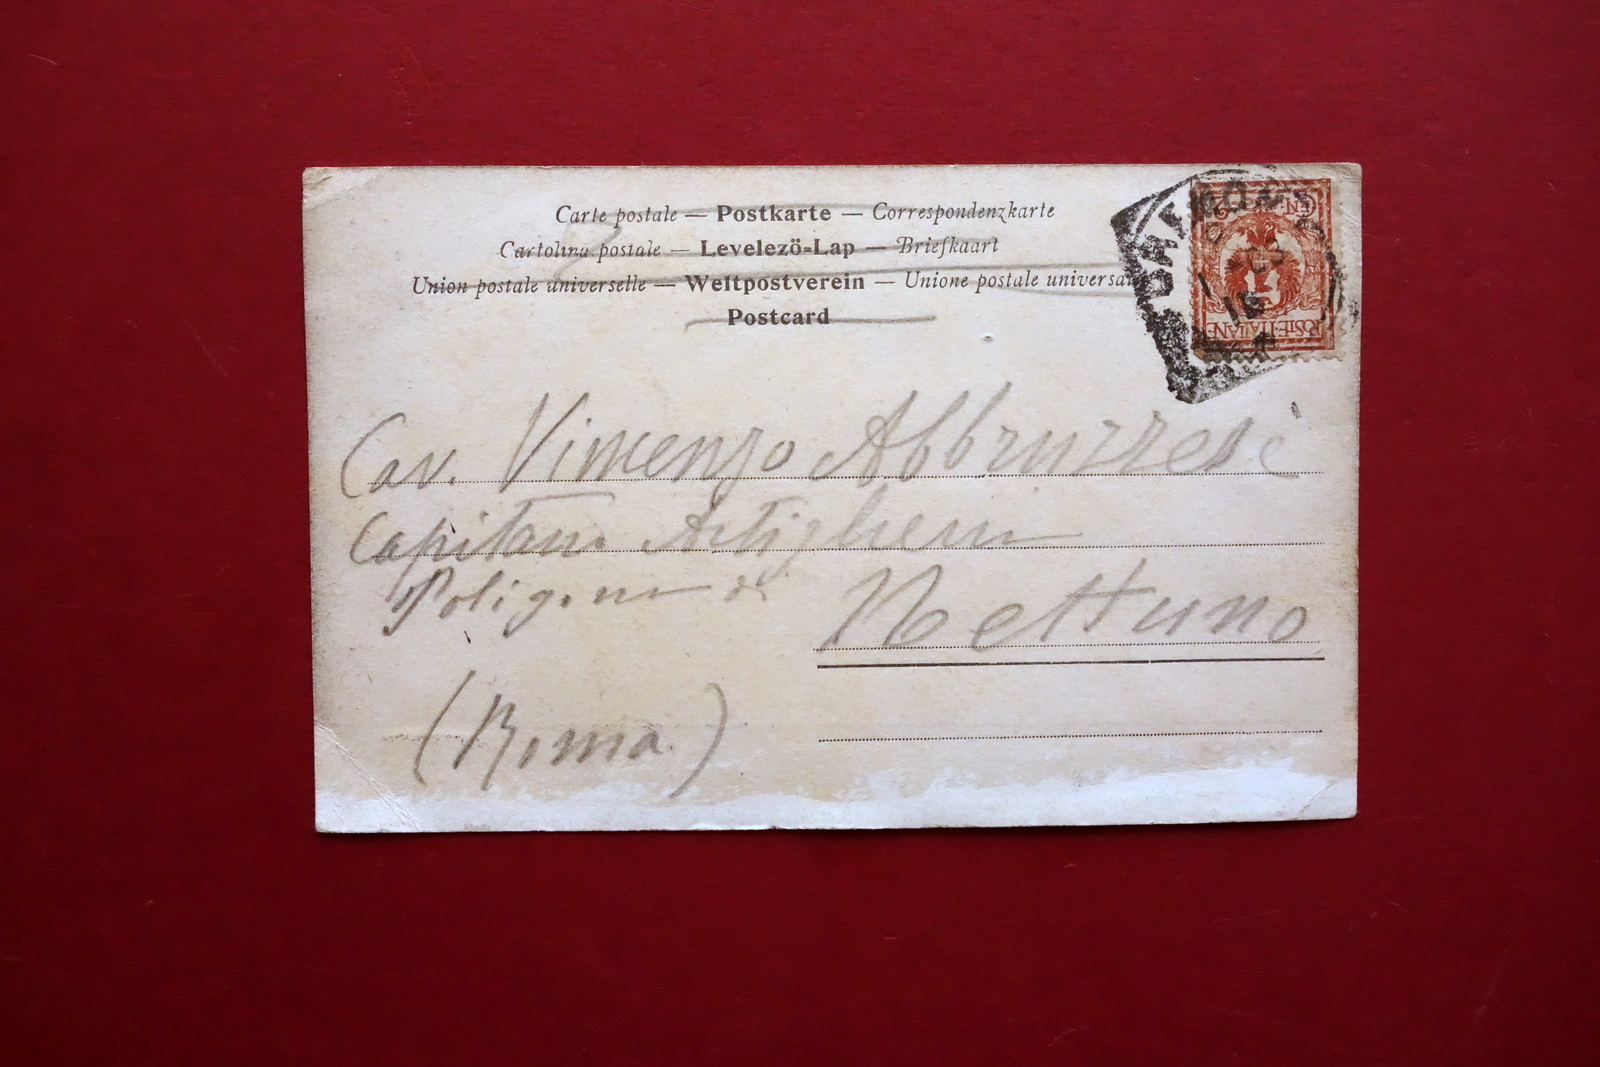 Carte postale — Postkarte — Correspondenzkarte
Cartolina postale — Levelezö-Lap — Briefkaart
Union postale universelle — Weltpostverein — Unione postale universa
Postcard
CEN 2
POSTE·ITALIANE
Cav. Vincenzo Abbruzzese
Capitano Artiglieria
Poligono di Nettuno
(Roma)